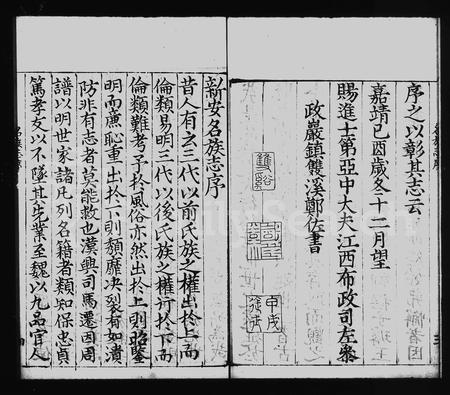 序之以彰其志云
嘉靖己酉歲冬十二月望
賜進士第亞中大夫江西布政司左叅
政巖鎮雙溪鄭佐書
雙溪
甲戌
新安名族志序
昔人有云三代以前氏族之權出於上而
倫類易明三代以後氏族之權行於下而
倫類難考予於風俗亦然出於上則昭鑒
明而廉恥重出於下則頹靡决裂有如潰
防非有志者莫能救也漢興司馬遷因周
譜以明世家諸凡列名籍者類知保忠貞
篤孝友以不墜其先業至魏以九品官人